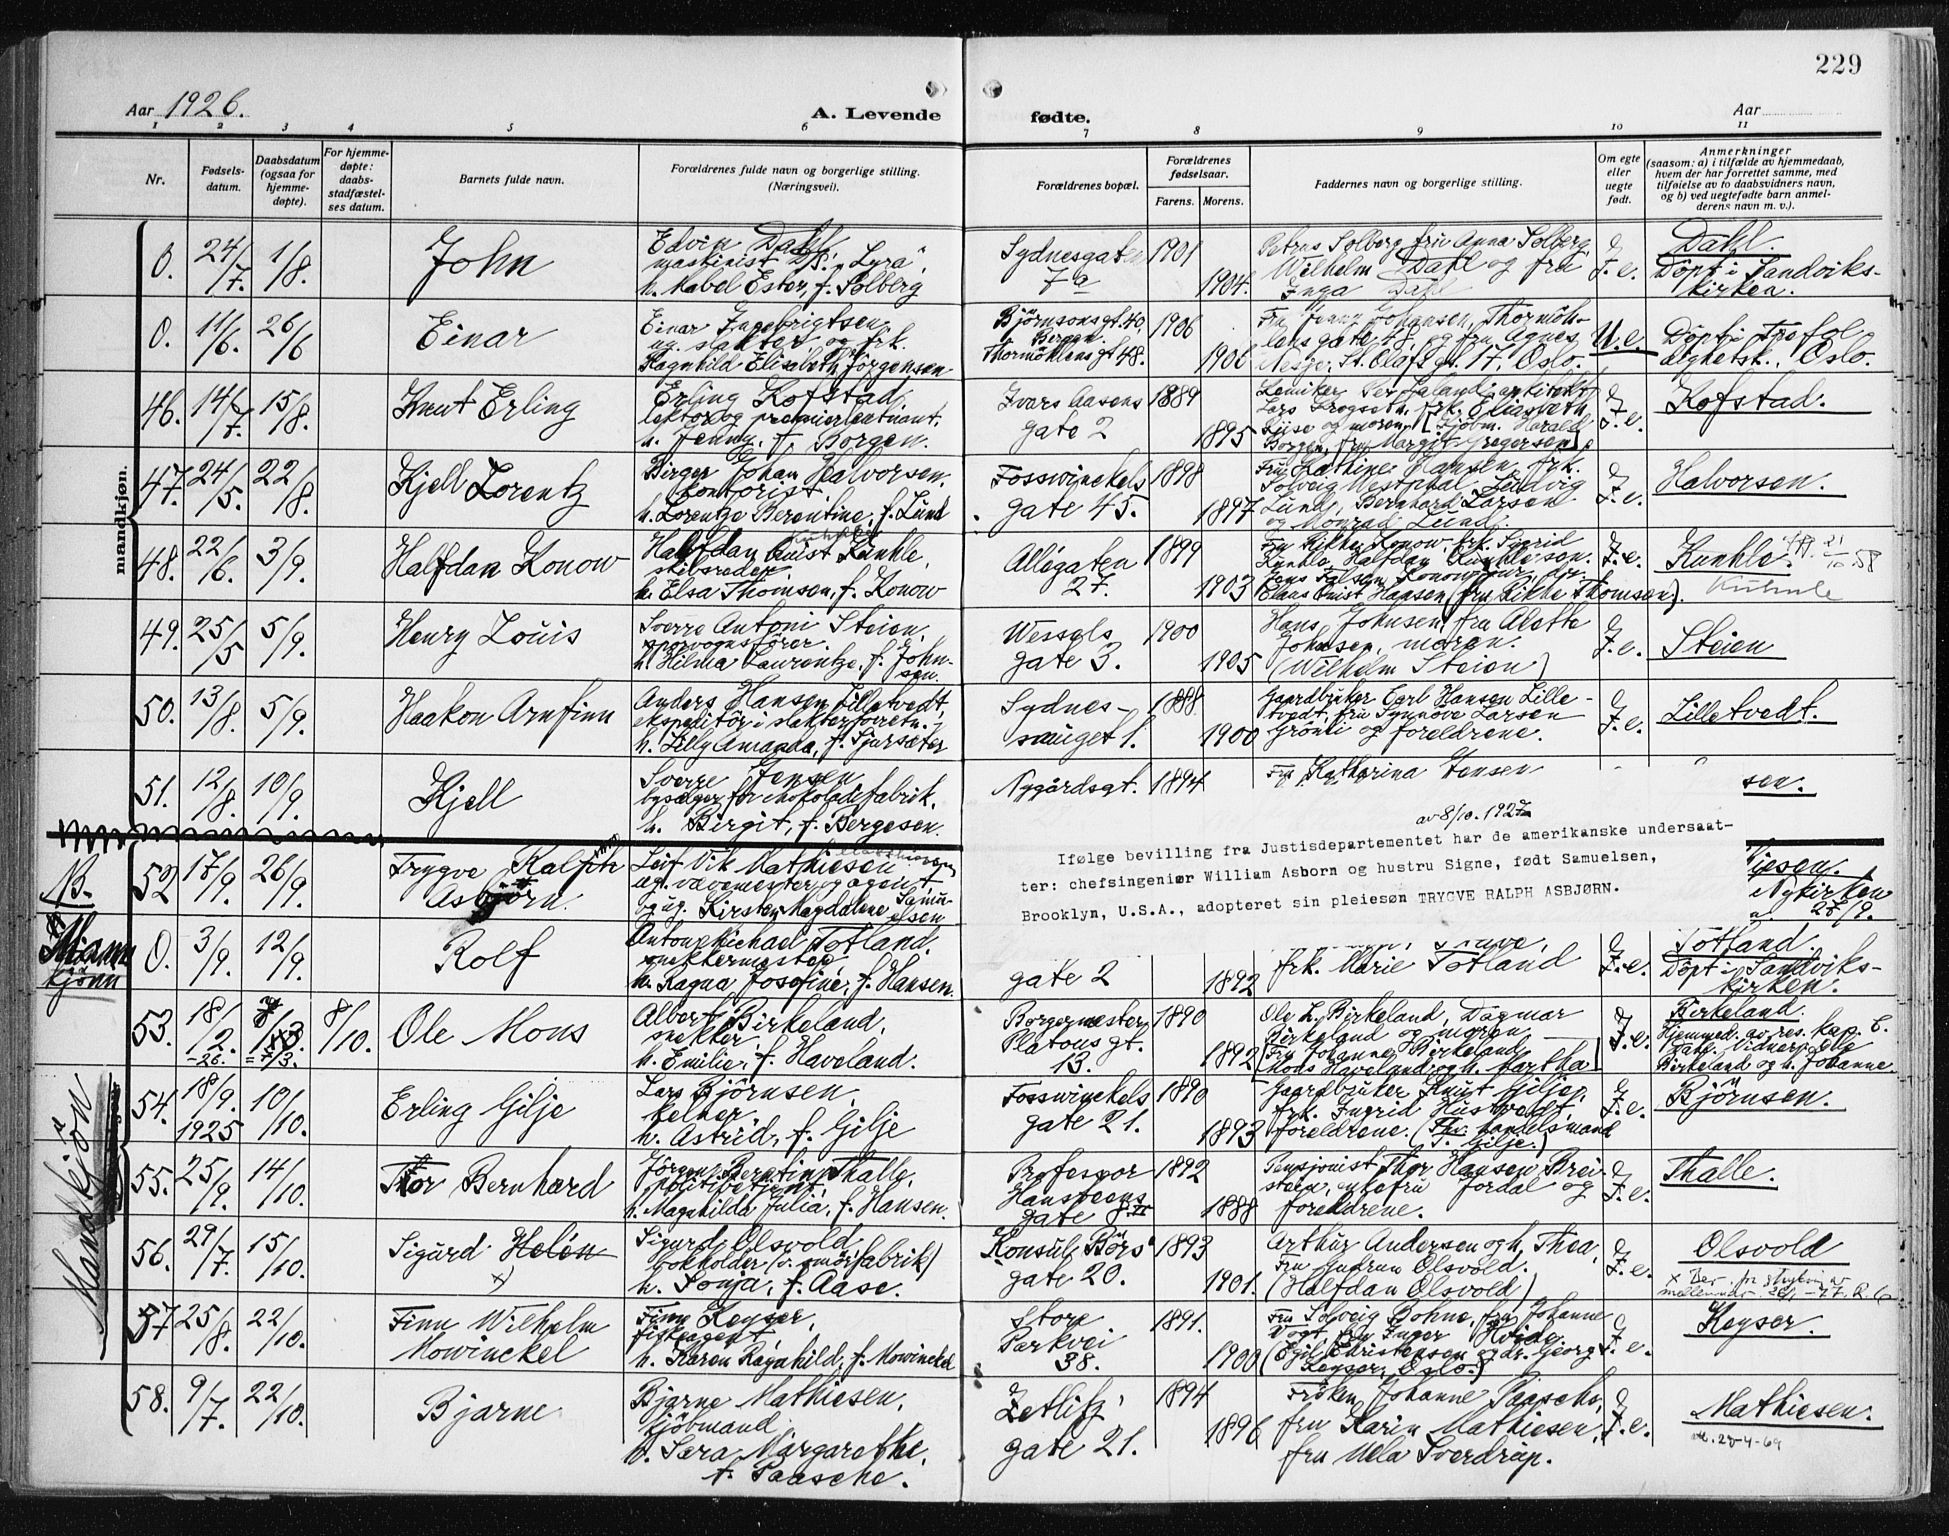 229
Aar 1926.
A. Levende
fødte.
Aar
1 2 3 4 5 6 7 8 9 10 11
Nr.
Fødsels-
datum.
Daabsdatum
(ogsaa for
hjemme-
døpte).
For hjemme-
døpte:
daabs-
stadfæstel-
ses datum.
Barnets fulde navn.
Forældrenes fulde navn og borgerlige stilling.
(Næringsvei).
Forældrenes bopæl.
Forældrenes
fødselsaar.
Farens. Morens.
Faddernes navn og borgerlige stilling.
Om egte
eller
uegte
født.
Anmerkninger
(saasom: a) i tilfælde av hjemmedaab,
hvem der har forrettet samme, med
tilføielse av to daabsvidners navn,
og b) ved uegtefødte barn anmel-
derens navn m. v.).
mandkjøn.
0. 24/7. 1/8. John
Edvin Dahl,
maskinist D/S. "Lyra",
h. Mabel Ester, f. Solberg
Sydnesgaten
7a
1901
1904.
Petrus Solberg, fru Anna Solberg,
Wilhelm Dahl og fru
Inga Dahl
F. e.
Dahl.
Döpt i Sandviks-
kirken.
0. 11/6. 26/6 Einar
Einar Ingebrigtsen
ug. slakter, og frk.
Ragnhild Elisabeth Jörgensen
Björnsonsgt. 40,
Bergen.
Thormöhlensgt 48.
1906
1906
Johansen, Thormöh-
lensgate 48, og fru Agnes
Nesje, St. Olafs gt. 17. Oslo.
U. e.
Döpt i Trefol-
dighetsk. Oslo.
46. 14/7. 15/8. Knut Erling
Erling Kofstad
lektor og premierleutnant.
h. Jenny, f. Borgen.
Ivars Aasens
gate 2
1889
1895
Kemiker Per Jaland, arkitekt
Lars Grogseth, frk. Elisabeth
Liise og moren. [Kjöbm. Harald
Borgen, fru Margit Gregersen]
F. e.
Kofstad.
47. 24/5. 22/8. Kjell Lorentz
Birger Johan Halvorsen.
kontorist
h. Lorentze Berentine, f. Lund
Fosswinckels
gate 45.
1898
1897
Fru Kathine Hansen, frk.
Solveig Westphal, Ludvig
Lund, Bernhard Larsen
og Monrad Lund.
F. e.
Halvorsen.
48. 22/6. 3/9. Halfdan Konow
Halfdan Quist Kunhle,
skibsreder,
h. Elsa Thomsen, f. Konow
Allégaten
27.
1899
1903
Fru Rikke Konow, frk. Sigrid
Kunhle, Halfdan Kunhle sen.
Jens Falsen Konow jun., dr.
Claus Quist Hansen (fru Rikke Thomsen).
F. e.
Kunhle.
21/10.58
49. 25/5 5/9. Henry Louis
Sverre Antoni Steien,
sporvognsförer.
h. Hilma Laurentze, f. John-
sen.
Wessels
gate 3.
1900
1905
Hans Johnsen, fru Alette
Johnsen, moren.
(Wilhelm Steien)
F. e.
Steien
50. 13/8. 5/9. Haakon Arnfinn
Anders Hansen Lilletvedt,
ekspeditör i slakterforretn.,
h. Lilly Amanda, f. Sjursæter
Sydnes-
smuget 1.
1888
1900
Gaardbruker Carl Hansen Lille-
tvedt, fru Synnöve Larsen
Grönli og foreldrene.
F. e.
Lilletvedt.
51. 12/8. 10/9. Kjell
Sverre Jensen
bysælger for chokoladefabrik.
h. Birgit, f. Bergesen.
Nygårdsgt.
1894
Fru Katharina Jensen
sen.
av 8/10. 1927
Ifølge bevilling fra Justisdepartementet har de amerikanske undersaat-
ter: chefsingeniør William Asborn og hustru Signe, født Samuelsen,
Brooklyn, U.S.A., adopteret sin pleiesøn TRYGVE RALPH ASBJØRN.
52 17/9. 26/9. Trygve Ralph
Asbjörn
Leif Vik Mathiesen
ug. vævemester og agent
og ug. Kirsten Magdalene Samu-
elsen
Nykirken
Mann
kjönn
0. 3/9. 12/9. Rolf
Anton Michael Totland,
snekkermester,
h. Ragna Josefine, f. Hansen.
gate 2
1892
frk. Marie Totland
F. e.
Totland.
Döpt i Sandviks-
kirken.
53. 18/2. -26. 7/3. 8/10. Ole Mons
Albert Birkeland,
snekker,
h. Emilie, f. Haveland.
Borgermester
Platous gt.
13.
1890
1892
Ole L. Birkeland, Dagmar
Birkeland og moren
[Fru Johanne Birkeland,
Mons Haveland og h. Martha]
F. e.
Birkeland.
Hjemmed. av res. kap.
Birkeland og h. Johanne
Mandkjön
54. 18/9. 1925 10/10. Erling Gilje
Lars Björnsen,
kelner,
h. Astrid, f. Gilje
Fosswinckels
gate 21.
1890
1893
Gaardbruker Knut Gilje,
frk. Ingrid Hustvedt,
foreldrene. (handelsmand
T. Gilje.)
F. e.
Björnsen.
55. 25/9. 14/10. Thor Bernhard
Jörgen Berntin Thalle,
politibetjent
h. Magnhilda Julia, f. Hansen.
Professor
Hansteens
gate
1892
1888
Pensjonist Thor Hansen Brei-
stein, enkefru Jordal og
foreldrene.
F. e.
Thalle.
56. 29/7. 15/10. Sigurd Helén
x)
Sigurd Olsvold
bokholder (v. smörfabrik)
h. Sonja, f. Aase.
Konsul Börs'
gate 20.
1893
1901.
Arthur Andersen og h. Thea,
Fru Gudrun Olsvold.
(Halfdan Olsvold)
F. e.
Olsvold
57 25/8. 22/10. Finn Wilhelm
Mowinckel
Finn Keyser,
fiskeagent,
h. Karen Ragnhild, f. Mowinckel
Store
Parkvei
38.
1891.
1900
Fru Solveig Bohne, fru Johanne
Vogt, fru Inger Heide
(Egil Christensen og dr. Georg
Keyser, Oslo.)
F. e.
Keyser.
58. 9/7. 22/10. Bjarne
Bjarne Mathiesen,
kjöbmand
h. Sara Margarethe,
f. Paasche.
Zetlitz'
gate 21.
1894
1896
Fröken Johanne Paasche,
fru Karin Mathiesen,
fru Mela Sverdrup.
F. e.
Mathiesen.
28-4-69